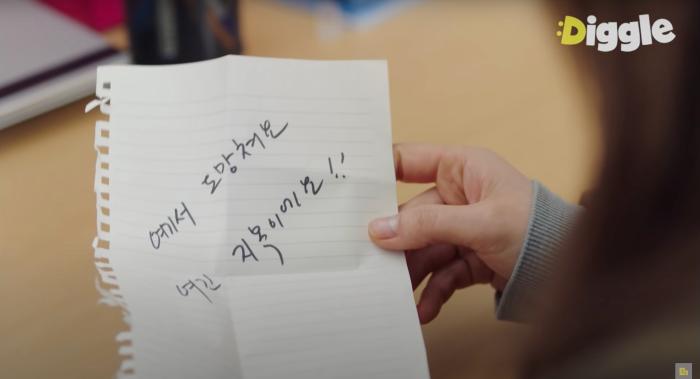 Diggle
여기서 도망쳐요
여긴 지옥이에요!!